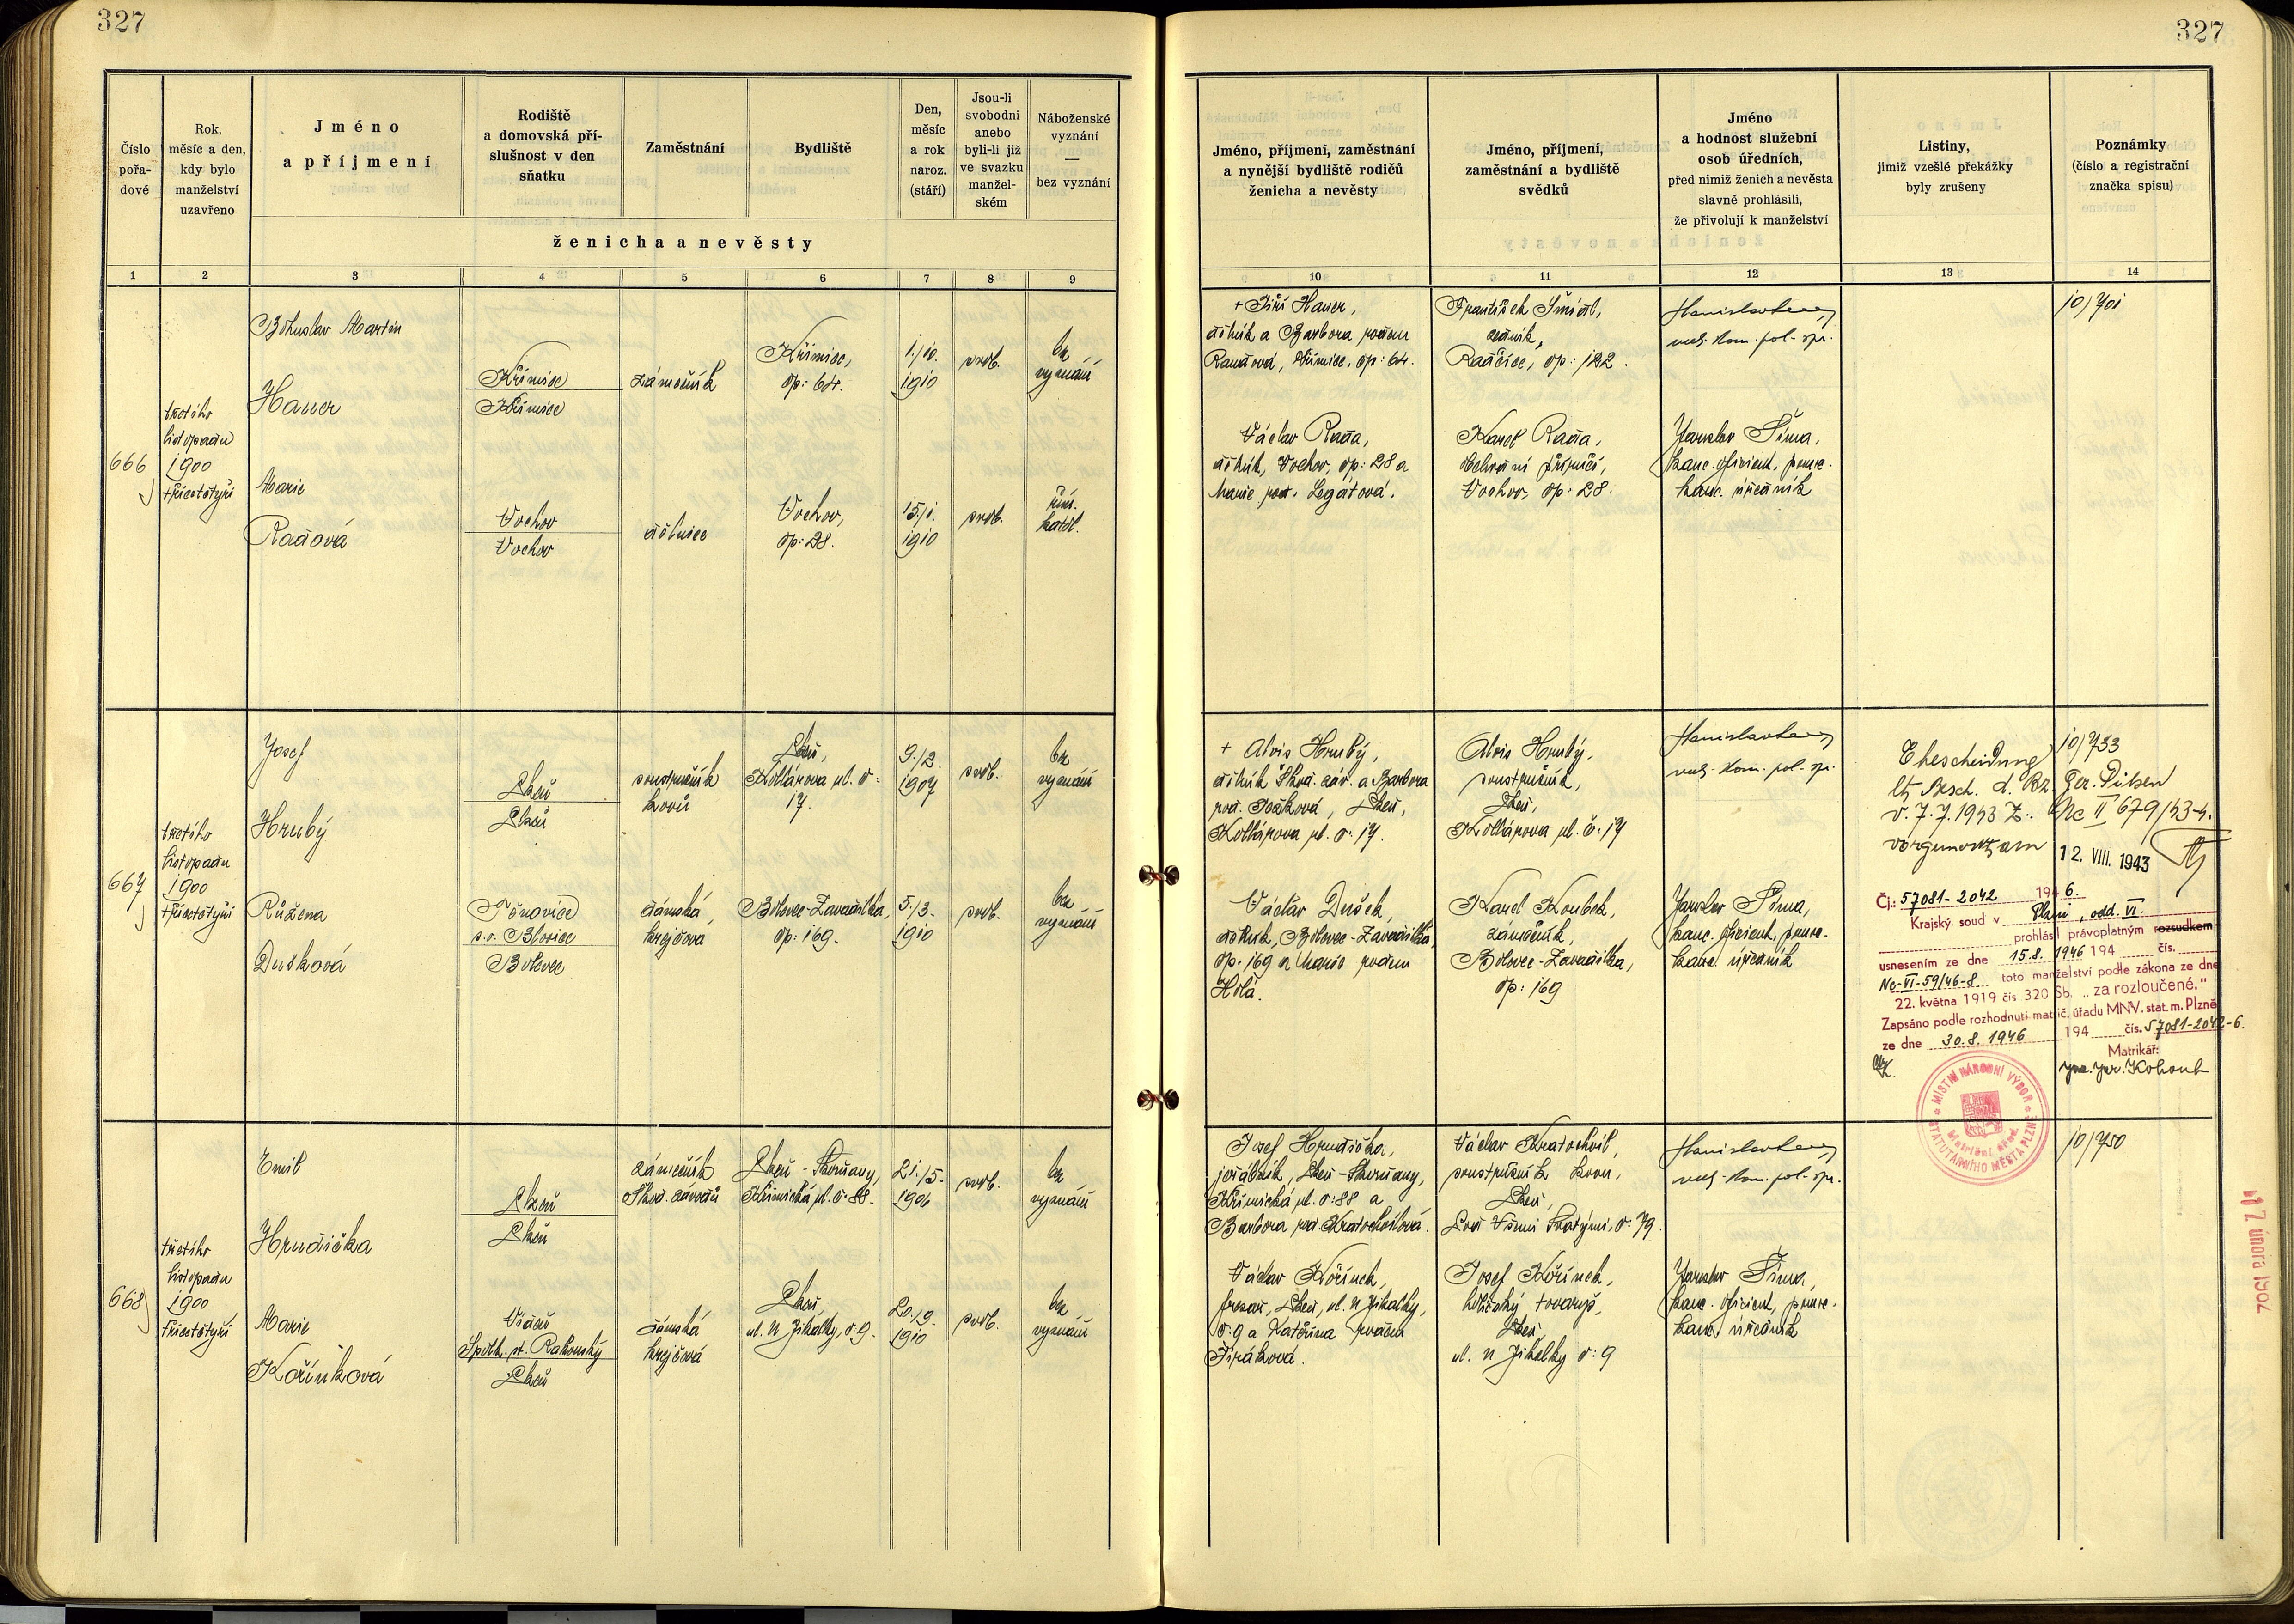 327
327
Číslo
pořa-
dové
Rok,
měsíc a den,
kdy bylo
manželství
uzavřeno
Jméno
a příjmení
Rodiště
a domovská pří-
slušnost v den
sňatku
Zaměstnání
Bydliště
Den,
měsíc
a rok
naroz.
(stáří)
Jsou-li
svobodni
anebo
byli-li již
ve svazku
manžel-
ském
Náboženské
vyznání
—
bez vyznání
ženicha a nevěsty
1 2 3 4 5 6 7 8 9
Jméno, příjmení, zaměstnání
a nynější bydliště rodičů
ženicha a nevěsty
Jméno, příjmení,
zaměstnání a bydliště
svědků
Jméno
a hodnost služební
osob úředních,
před nimiž ženich a nevěsta
slavně prohlásili,
že přivolují k manželství
Listiny,
jimiž vzešlé překážky
byly zrušeny
Poznámky
(číslo a registrační
značka spisu)
10 11 12 13 14
666
třetího
listopadu
1900
třicetčtyři
Bohuslav Martin
Hauer
Křimice
Křimice
zámečník
Křimice,
čp: 64.
1./10.
1910
svob.
bez
vyznání
Marie
Radová
Vochov
Vochov
dělnice
Vochov,
čp: 28.
15./1.
1910
svob.
řím.
katol.
+ Jiří Hauer,
dělník a Barbora rodem
Randová, Křimice, čp: 64.
František Šmídl,
úředník,
Radčice, čp: 122.
10/701
Václav Rada,
dělník, Vochov, čp: 28 a
Marie roz. Legátová.
Karel Rada,
obchodní příručí,
Vochov, čp: 28.
Jaroslav Šíma,
kanc. oficient, pomoc.
kanc. úředník
667
třetího
listopadu
1900
třicetčtyři
Josef
Hrubý
Plzeň
Plzeň
soustružník
kovů
Plzeň,
Kollárova ul. č:
17.
9./2.
1907
svob.
bez
vyznání
Růžena
Dušková
s.o. Blovice
Bolevec
dámská
krejčová
Bolevec-Zavadilka,
čp: 169.
5./3.
1910
svob.
bez
vyznání
+ Alois Hrubý,
dělník Škod. záv. a Barbora
Plzeň,
Kollárova ul. č: 17.
Alois Hrubý,
soustružník,
Plzeň,
Kollárova ul. č: 17
Václav Dušek,
dělník, Bolevec-Zavadilka,
čp. 169 a Marie rodem
Holá.
Karel Koubek,
zámečník,
Bolevec-Zavadilka,
čp: 169
Jaroslav Šíma,
kanc. oficient, pomoc.
kanc. úředník
10/733
Ehescheidung
lt. Besch. d. Bz. Ger. Pilsen
v. 7.7.1943 Z.: Nc II 679/43-4.
vorgemerkt am 12. VIII. 1943
Čj.: 57081-2042 194 6.
Krajský soud v Plzni, odd. VI.
prohlásil právoplatným rozsudkem
usnesením ze dne 15.8. 1946 194 čís.
Nc-VI-59/46-8 toto manželství podle zákona ze dne
22. května 1919 čís 320 Sb. „za rozloučené."
Zapsáno podle rozhodnutí matrič. úřadu MNV. stat. m. Plzně
ze dne 30.8. 1946 194 čís. 57081-2042-6.
Matrikář:
Kohout
MÍSTNÍ NÁRODNÍ VÝBOR
STATUTÁRNÍHO MĚSTA PLZNĚ
668
třetího
listopadu
1900
třicetčtyři
Emil
Hrudička
Plzeň
Plzeň
zámečník
Škod. závodů
Plzeň - Skvrňany,
Křimická ul. č: 88.
21./5.
1906
svob.
bez
vyznání
Marie
Kořínková
Vídeň
Plzeň
dámská
krejčová
Plzeň,
ul. U Jikalky, č: 9.
20./9.
1910
svob.
bez
vyznání
Josef Hrudička,
jeřábník, Plzeň-Skvrňany,
Křimická ul. č: 88 a
Barbora roz. Kratochvílová.
Václav Kratochvíl,
soustružník kovů,
Plzeň,
Pod Všemi Svatými, č: 79.
10/750
Václav Kořínek,
frézař, Plzeň, ul. U Jikalky,
č: 9 a Kateřina rodem
Jiráková.
Josef Kořínek,
holičský tovaryš,
Plzeň
ul. U Jikalky č: 9
Jaroslav Šíma,
kanc. oficient, pomoc.
kanc. úředník